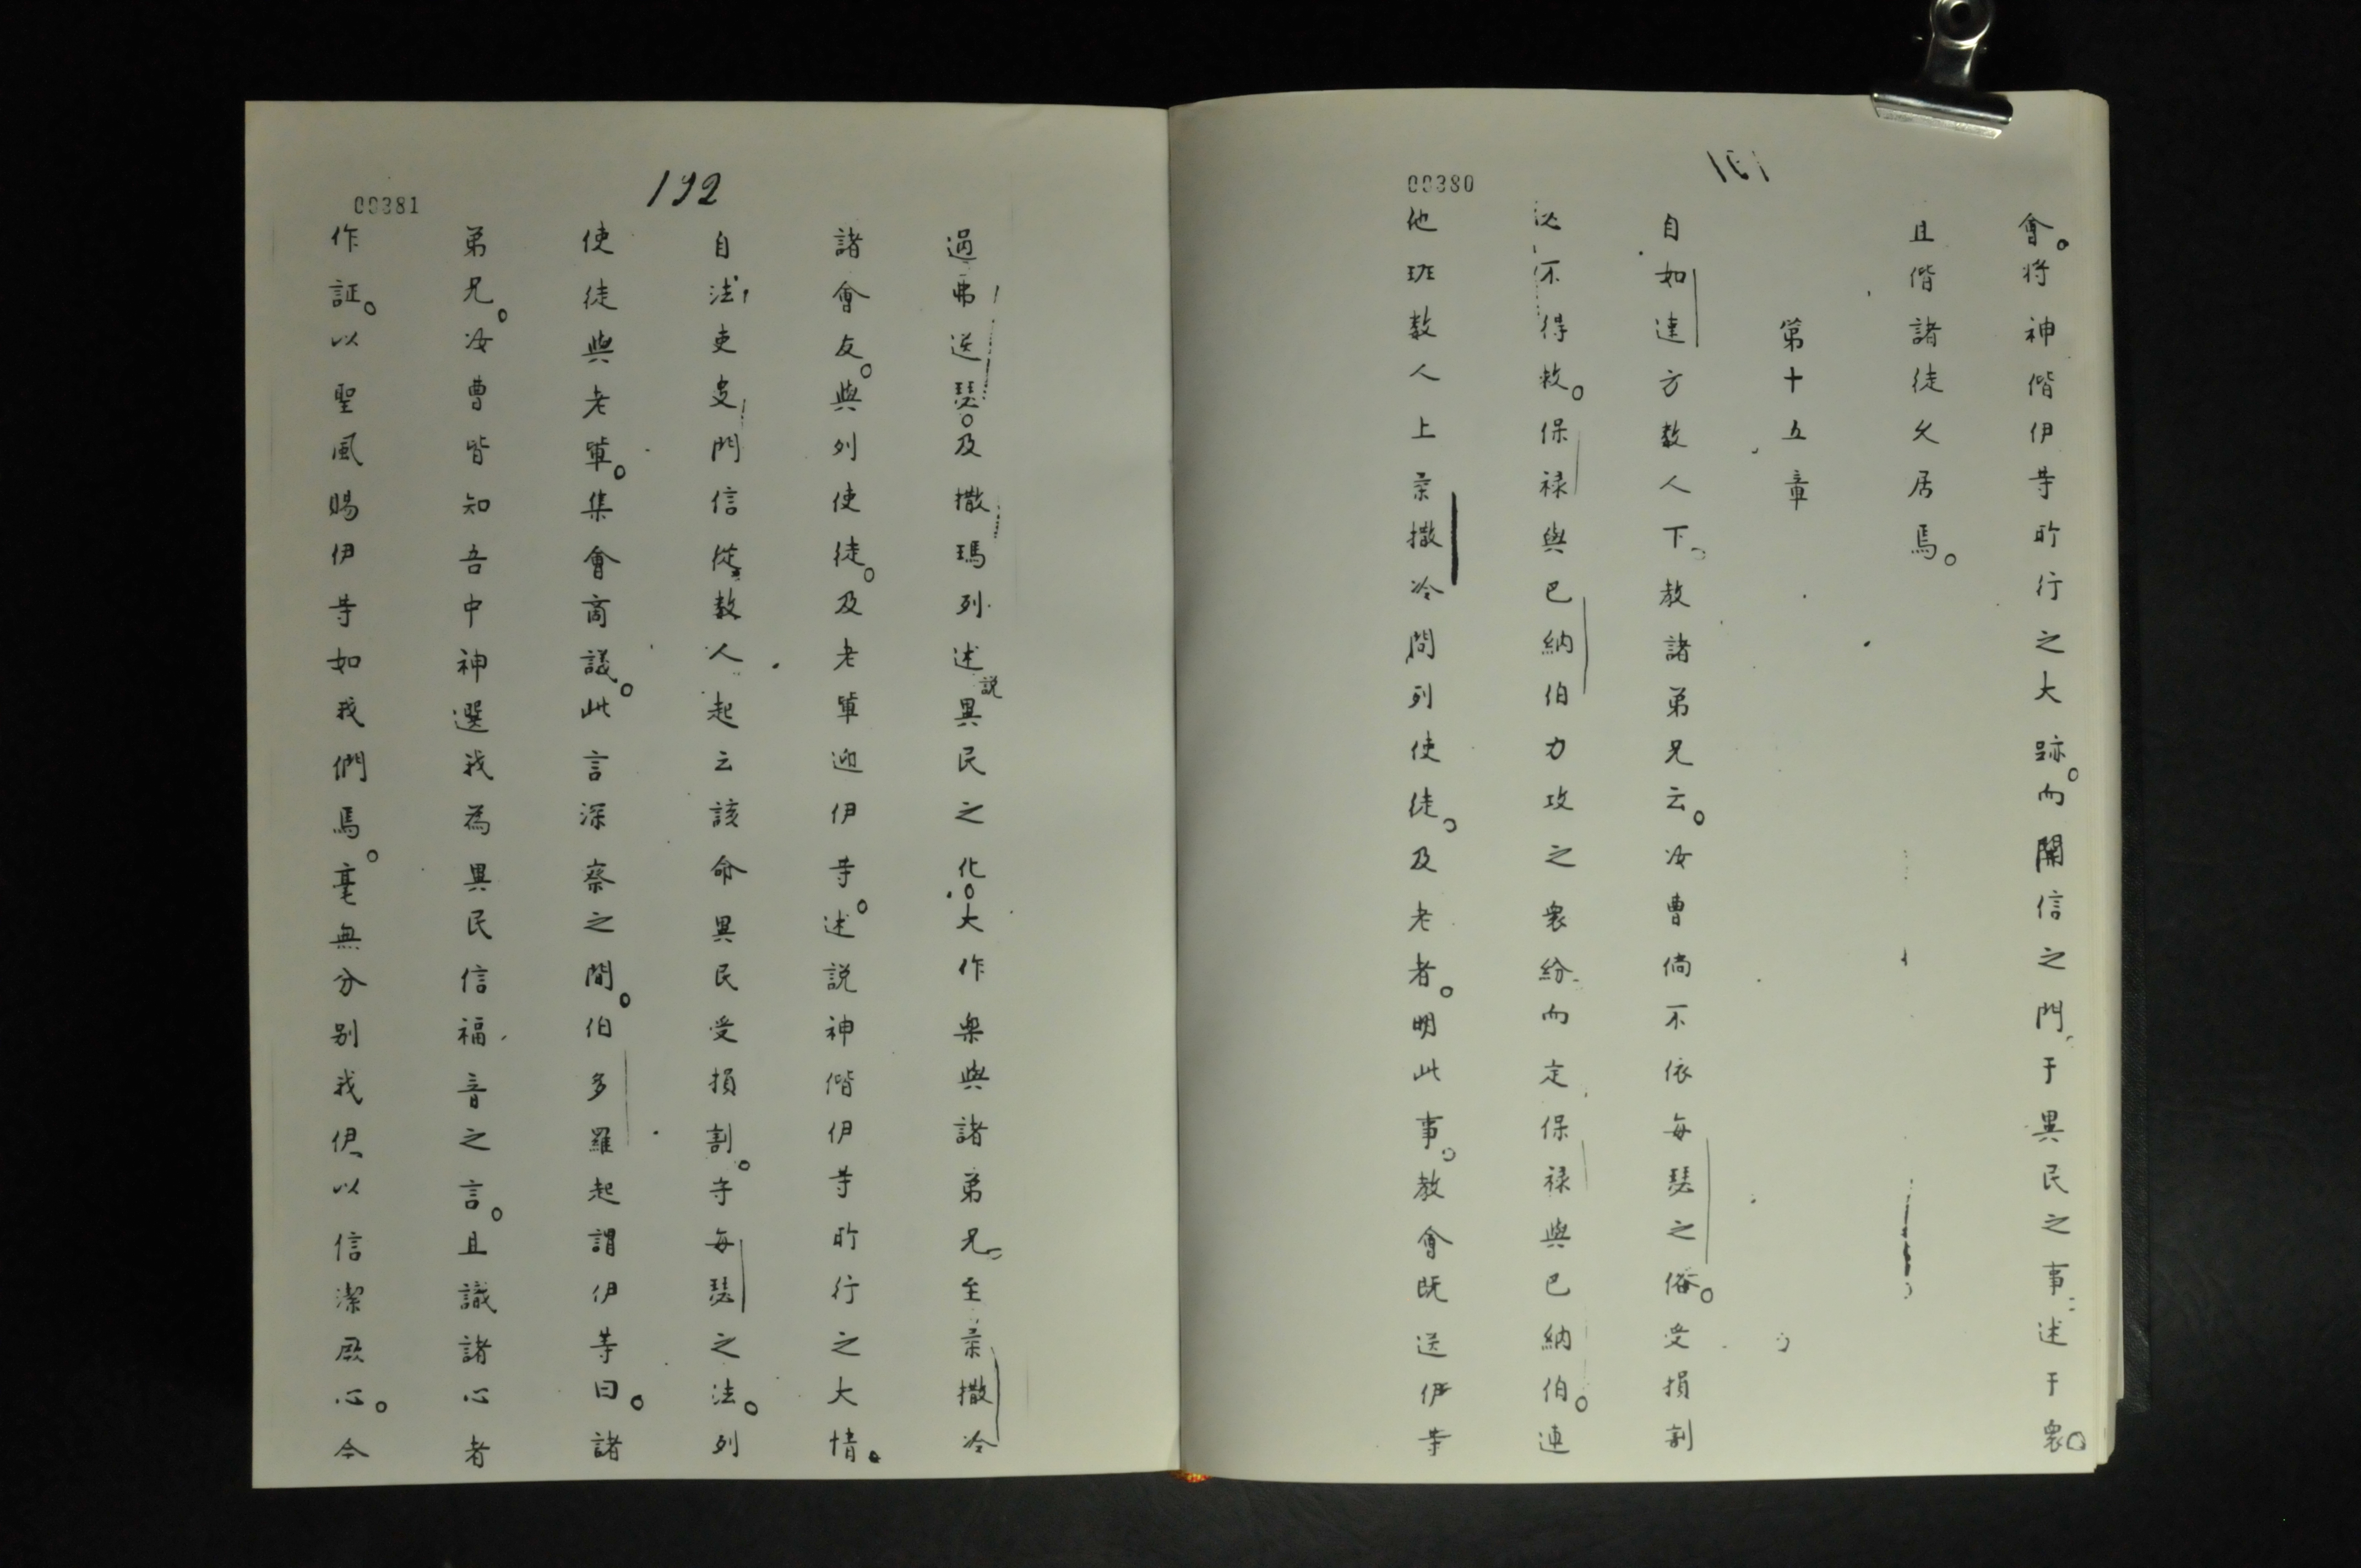 00380
191
會。将神偕伊等所行之大跡。而開信之門。于異民之事。述于衆。
且偕諸徒久居焉。
第十五章
自如達方数人下。教諸弟兄云。汝曹倘不依每瑟之俗。受損割
必不得救。保禄與巴納伯力攻之衆紛而定保禄與巴納伯。連
他班数人上柔撒冷問列使徒。及老者。明此事。教會既送伊等
00381
192
過弗送瑟。及撒瑪列述説異民之化。大作樂與諸弟兄。至柔撒冷
諸會友。與列使徒。及老軰迎伊等。述説神偕伊等所行之大情。
自法吏叟門信從数人起云該命異民受損割。守每瑟之法。列
使徒與老軰。集會商議。此言深察之間。伯多羅起謂伊等曰。諸
弟兄。汝曹皆知吾中神選我為異民信福音之言。且識諸心者
作証。以聖風賜伊等如我們焉。毫無分别我伊、以信潔厥心。今